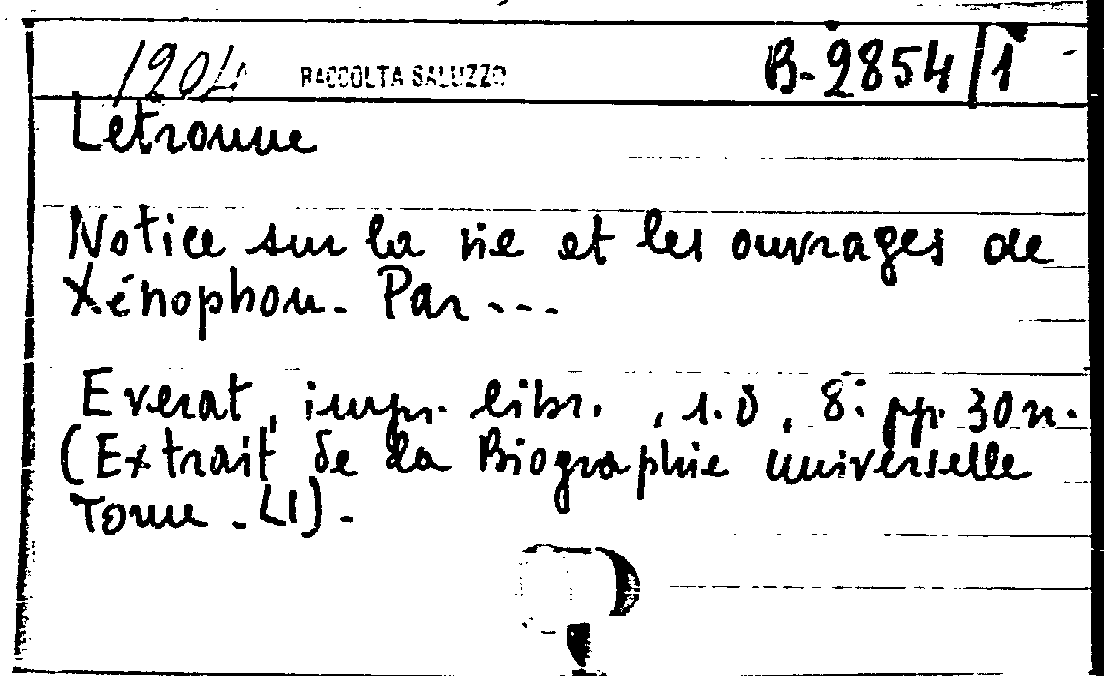 1204 RACCOLTA SALUZZO B-2854/1
Letronne
Notice sur la vie et les ouvrages de
Xénophon. Par ...
Everat, impr. libr. , s.d, 8.° pp. 30 n.
(Extrait de la Biographie universelle
Tome. LI).